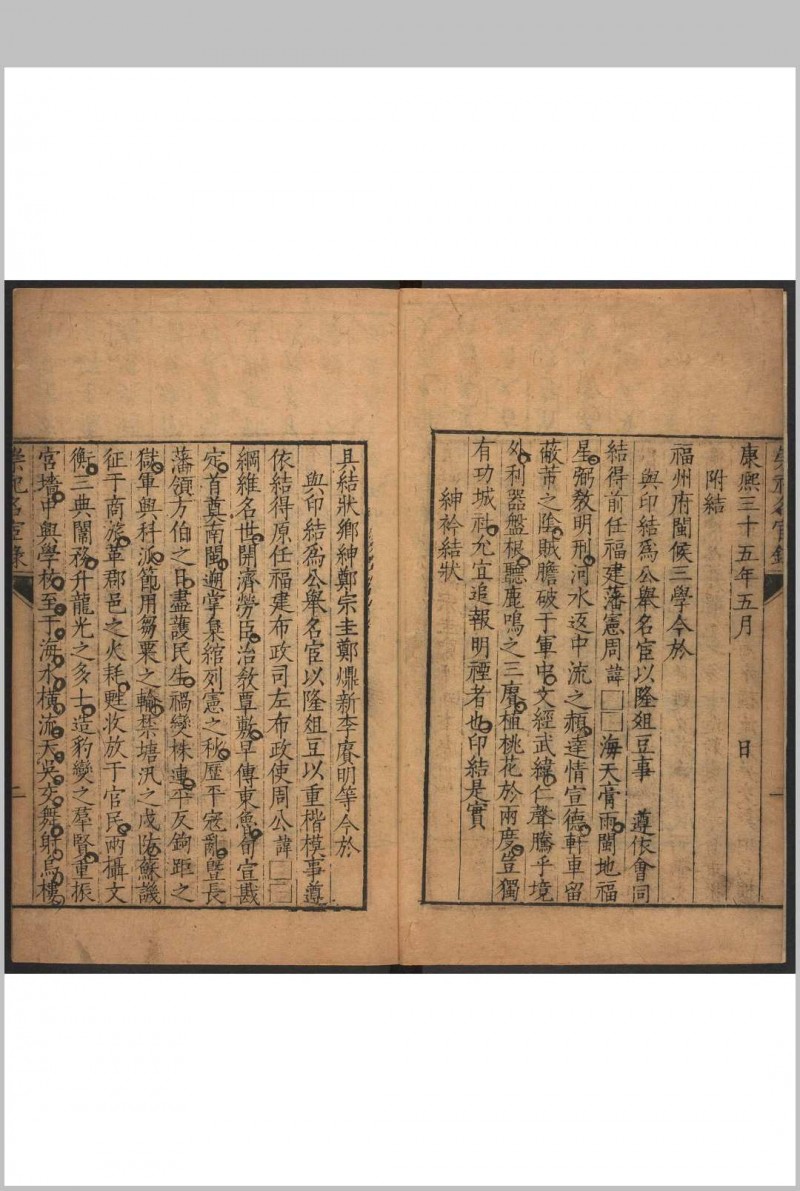 崇祀名宦錄
一
康熙三十五年五月　日
附結
福州府閩侯三學今於
與印結爲公舉名宦以隆俎豆事　遵依會同
結得前任福建藩憲周諱□□海天膏雨閩地福
星弼敎明刑河水返中流之赬達情宣德軒車留
蔽芾之陰賊膽破于軍中文經武緯仁聲騰乎境
外利器盤根聽鹿鳴之三賡植桃花於兩度豈獨
有功城社允宜追報明禋者也印結是實
紳衿結狀
具結狀鄉紳鄭宗圭鄭爌新李賡明等今於
與印結爲公舉名宦以隆俎豆以重楷模事遵
依結得原任福建布政司左布政使周公諱□□
綱維名世開濟勞臣治敎覃敷早傳東魯旬宣戡
定首奠南閩遡掌臬綰列憲之秋歷平寇亂曁長
藩領方伯之日盡護民生禍變株連平反鉤距之
獄軍興科派節用芻粟之輸禁塘汛之戍防蘇譏
征于商旅革郡邑之火耗甦收放于官民兩攝文
衡三典闈務升龍光之多士造豹變之羣賢重振
宮墻中興學校至于海水橫流天吳交舞射烏樓
崇祀名宦錄
二